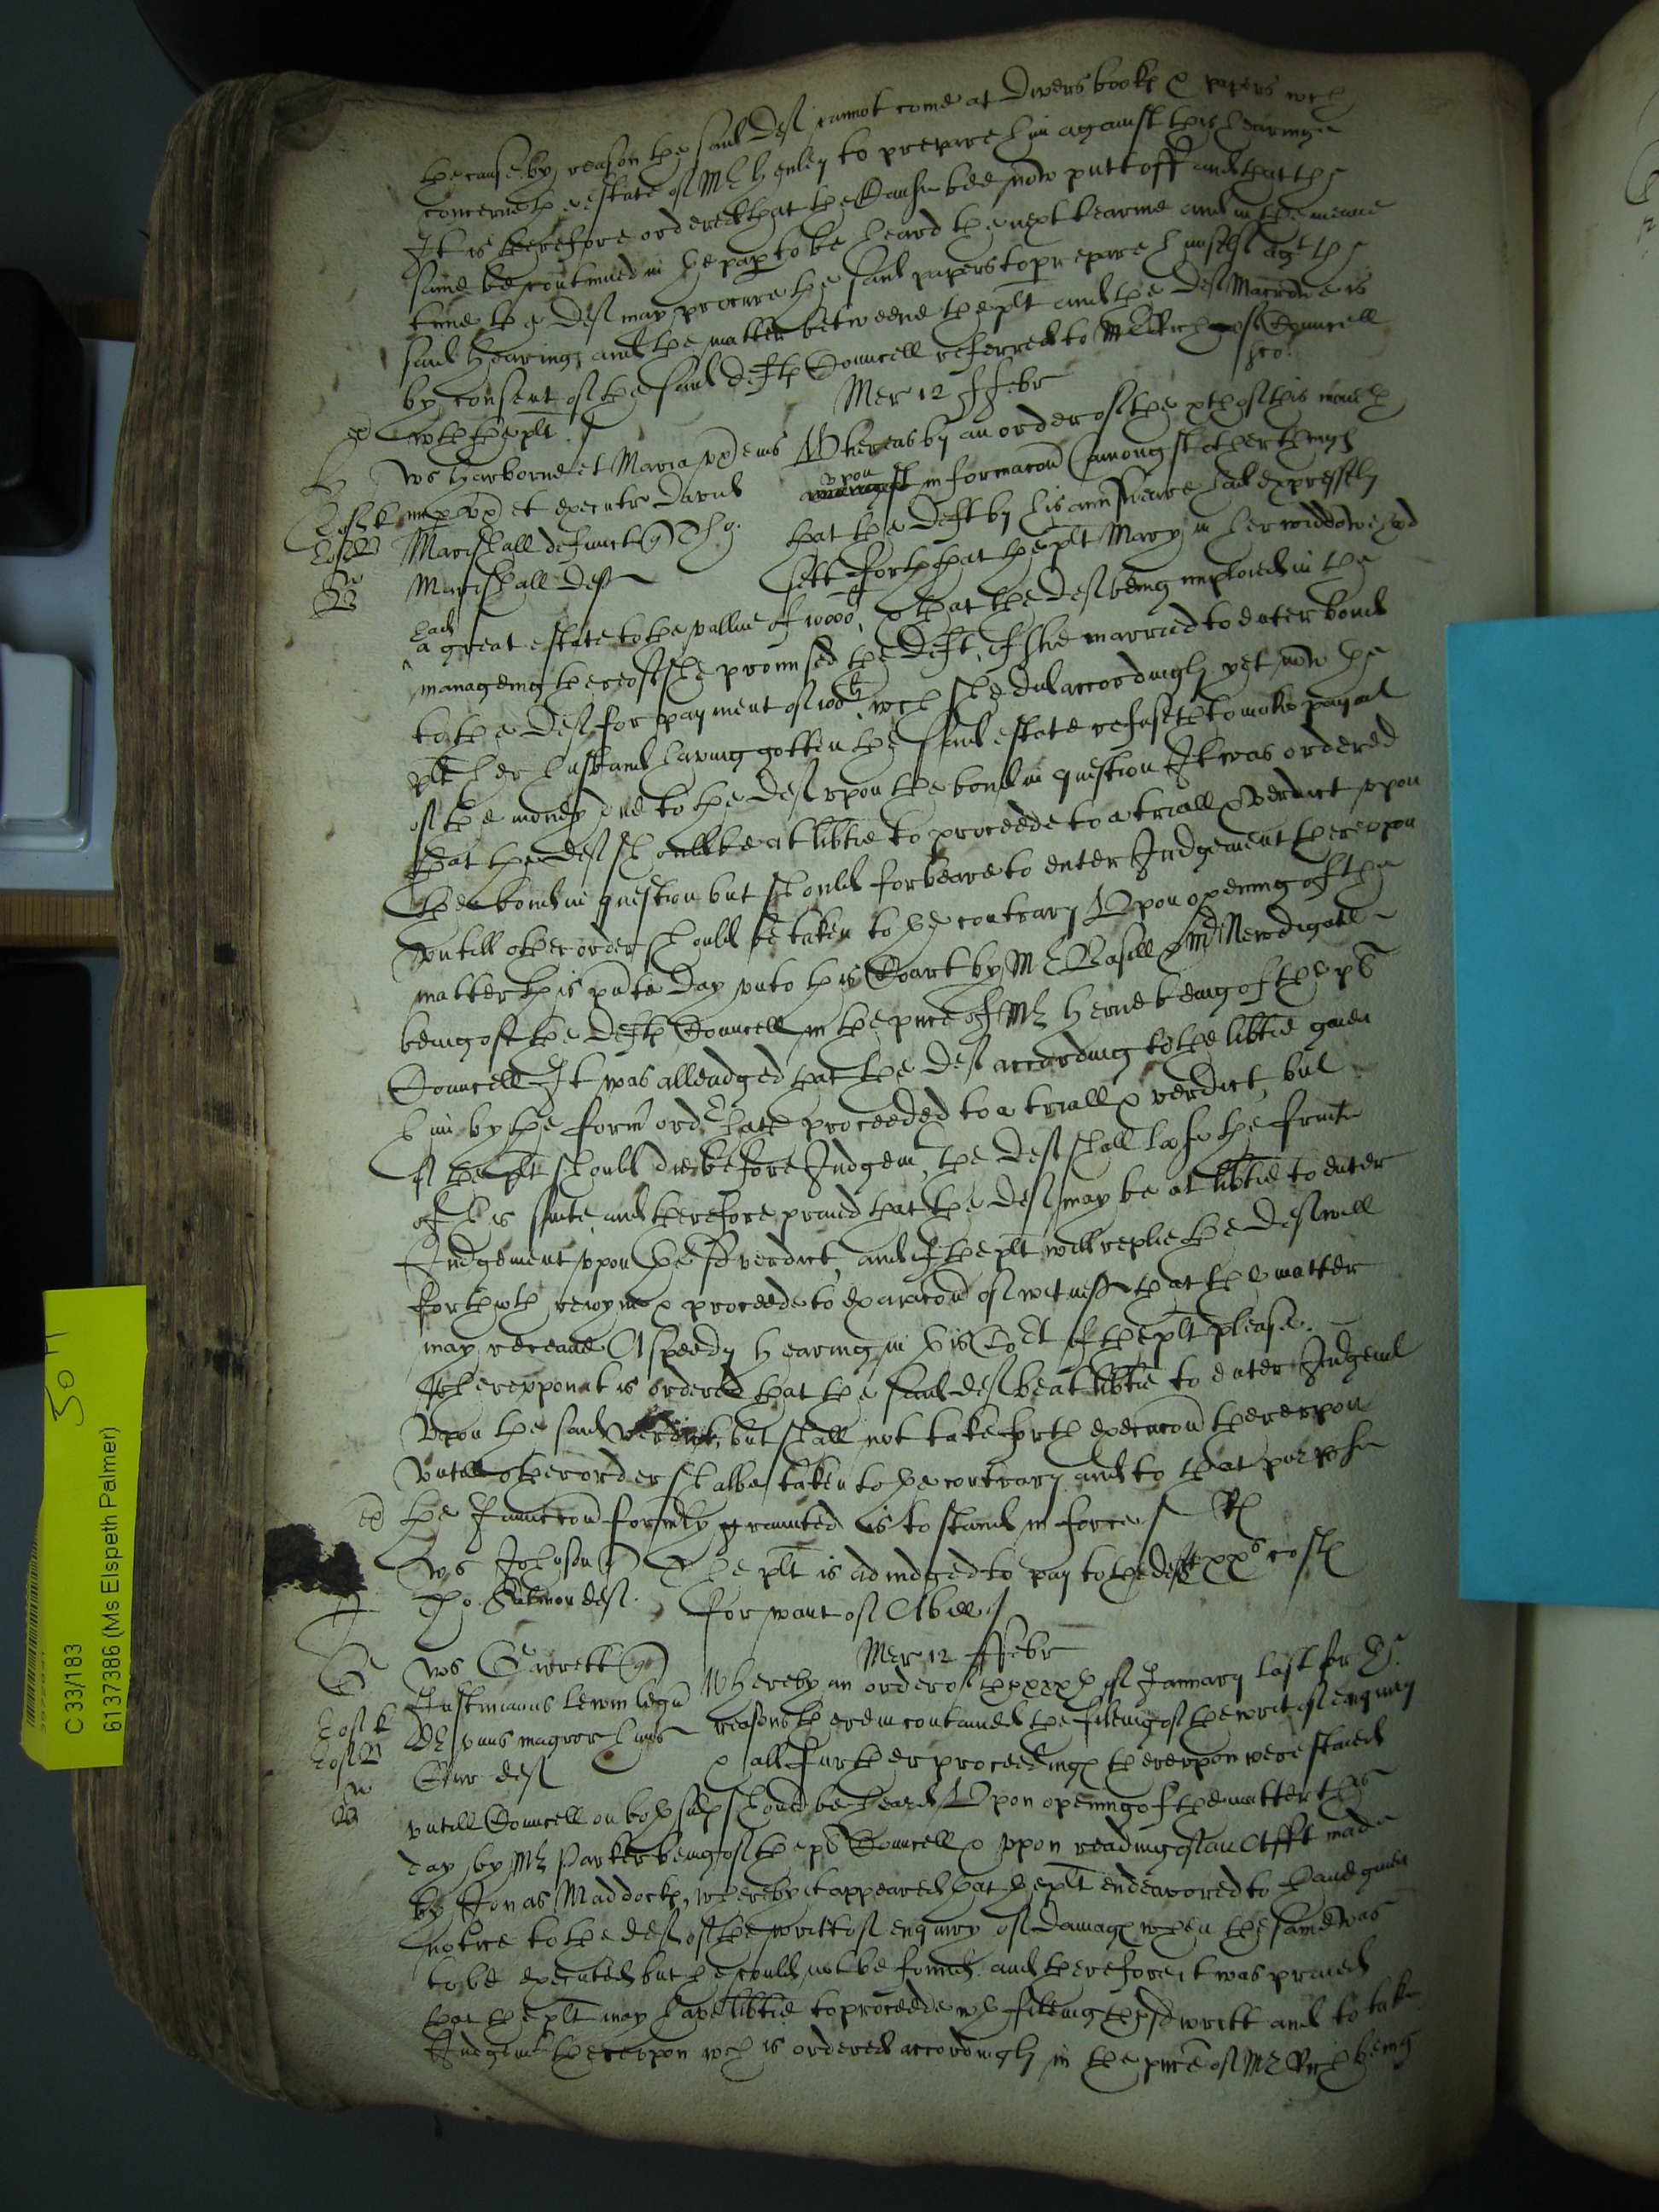 the cause by reason the said Def cannot come at divers bookes & papers wch
concerne the estate of Mr Henley to prepare him against this hearinge
It is therefore ordered that the Cause bee now putt off and that the
same be continued in the paper to be heard the next tearme and in the meane
tyme the Def may procure the said papers to prepare himselfe agt the
said hearing and the matter betweene the plt and the Def is
by consent of the said defts Councell referred to Mr Rich of Councell
wth the plt
Mer 12 ffebr
Ws Harborne et Maria ux eius Whereas by an order of the xth of this moneth
nup ux et executr David upon informacon (amongst other things
Marshall defunct qt Tho. that the Deft by his answeare had expressely
Marshall def sett forth that the plt Mary in her widdowehood
had
a great estate to the vallue of 10000li, & that the Def being imployed in the
manageing thereof she promised the Deft, if she married to enter bond
to the Def for payment of 100li wch she did accordingly yet now the
plt her husband having gotten the said estate refuseth to make paymt
of the money due to the Def upon the bond in question It was ordered
that the def should be at libtie to proceede to a triall & verdict upon
the bond in question but should forbeare to enter Judgement thereupon
untill other order should be taken to the contrary Upon opening of the
matter this pnte day unto this Court by Mr Basill & Mr Newdigate
being of the Defts Councell in the pnce of Mr Herne being of the pts
Councell It was alleadged that the Def according to the libtie given
him by the form ordr hath proceeded to a triall & verdict, but
if the plt should die before Judgemt, the Def shall loose the fruite
of his suite and therefore praied that the def may be at libtie to enter
Judgement upon the sd verdict, and if the plt will replie the Def will
forthwth reioyne & proceede to examinacon of witnesses that the matter
may receave A speedy hearing in this Cort if the plt please.
Whereupon it is ordered that the said def be at libtie to enter Judgemt
upon the said verdict, but shall not take forth execucon thereupon
untill other order shalbe taken to the contrary and to that purpose
the Iniunccon formerly graunted is to stand in force
Ws Johnson qt The plt is adiudged to pay to the deft xxs costes
Tho. Salmon def. for want of A bill
Mer 12 ffebr
Ws Garrett qt Whereby an order of the of January last for the
Justinianus Lewin legu reasons therein contained the fileing of the writ of enquiry
Dr unus magror & all further proceedings thereupon were staied
Cur def
untill Councell on both sides should be heard Upon opening of the matter this
day by Mr Parker being of the pts Councell & upon reading of an Afft made
by Jonas Maddocke, whereby it appeared that the plt endeavored to have given
notice to the def of the writt of enquiry of damages when the same was
to be executed but he could not be found. and therefore it was praied
that the plt may have libtie to proceede wth fileing the sd writt and to take
Judgemt thereupon wch is ordered accordingly in the pnce of Mr Rich being
C 33/183
6137386 (Ms Elspeth Palmer)